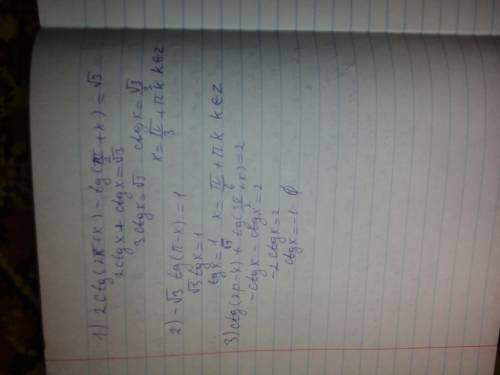 1) 2ctg(2π+x) - tg(π/2+x) = √3
2ctgx + ctgx = √3
3ctgx = √3 ctgx = √3/3
x = π/3 + πk k∈z
2) -√3 tg(π-x) = 1
√3 tgx = 1
tgx = 1/√3 x = π/6 + πk k∈z
3) ctg(2p-x) + tg(3π/2+x) = 2
-ctgx - ctgx = 2
-2ctgx = 2
ctgx = -1